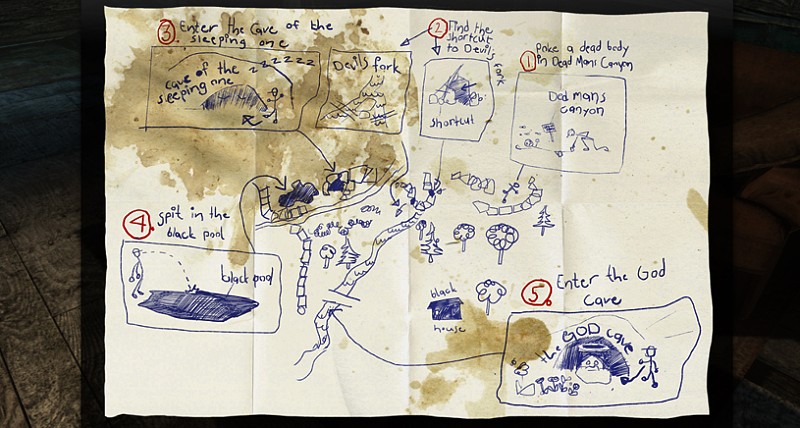 3 Enter the Cave of the
sleeping one
2 Find the
shortcut
to Devils
fork
1 Poke a dead body
in Dead Mans Canyon
cave of the
sleeping one
zzzzzz
Devils fork
shortcut
Dead mans
canyon
4. Spit in the
black pool
black pool
black
house
5. Enter the God
Cave
the GOD cave